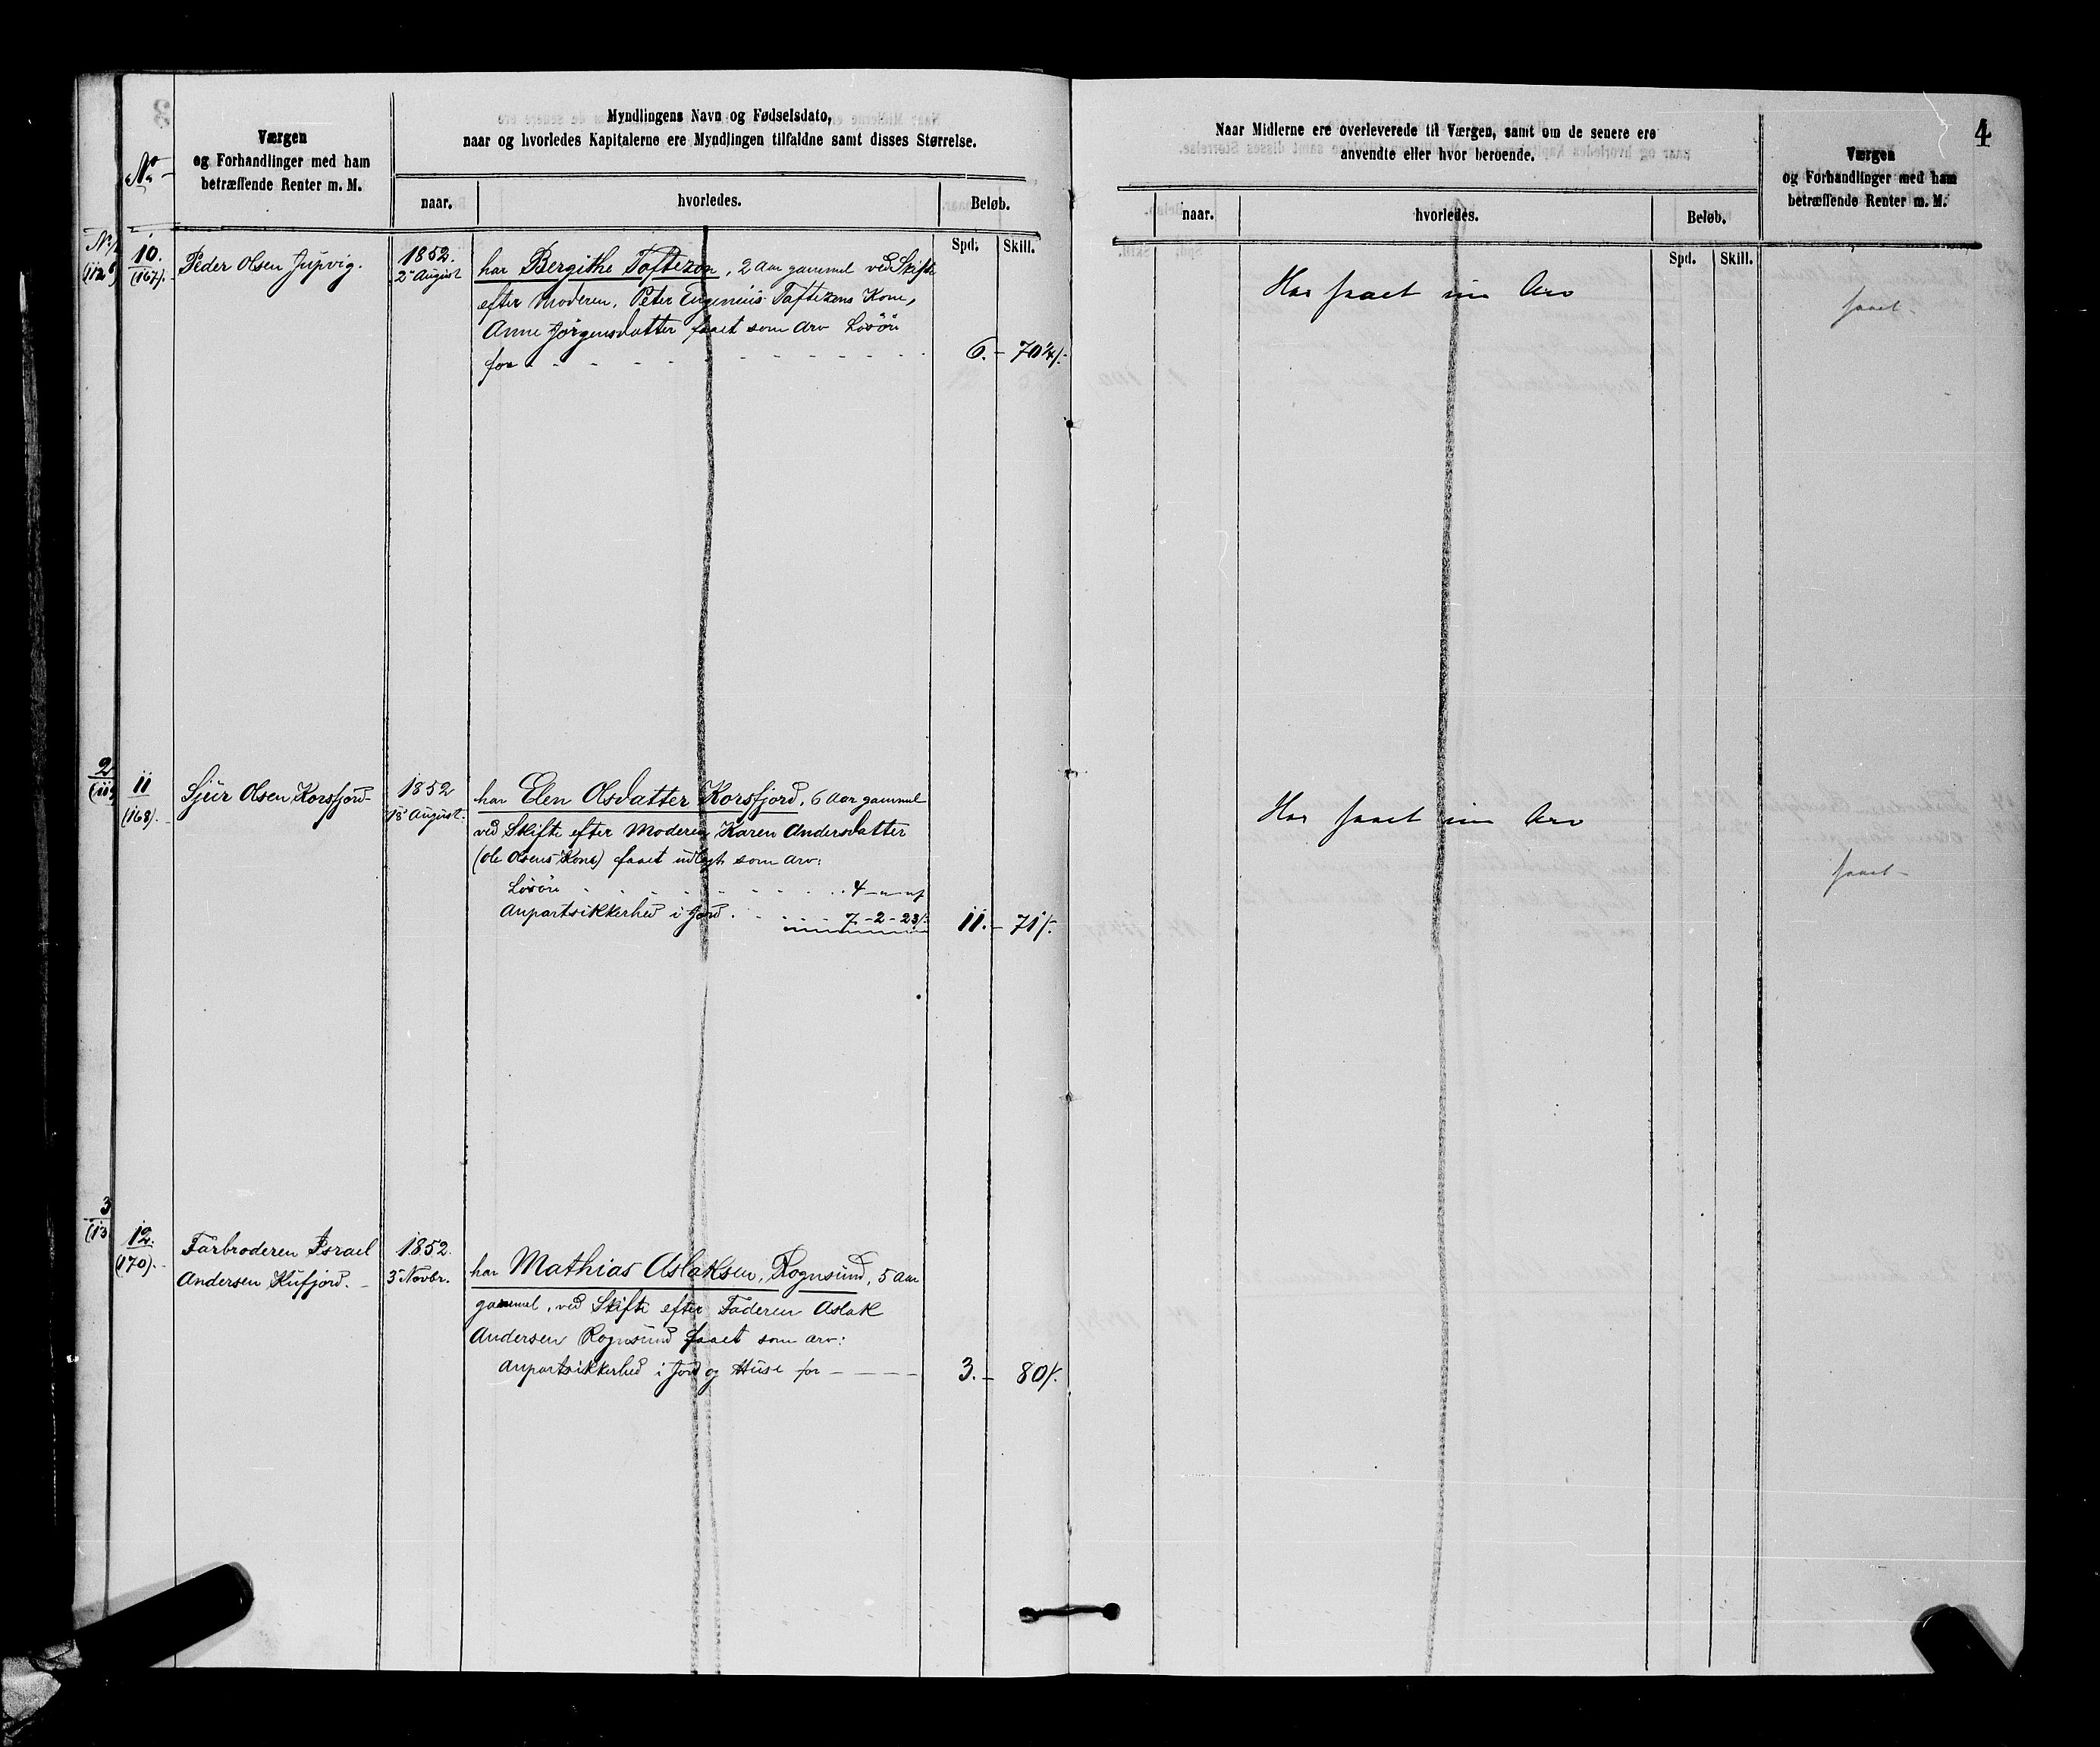 4
No
Værgen
og Forhandlinger med ham
betræffende Renter m. M.
Myndlingens Navn og Fødselsdato,
naar og hvorledes Kapitalerne ere Myndlingen tilfaldne samt disses Størrelse.
naar.
hvorledes.
Beløb.
Spd.
Skill.
Naar Midlerne ere overleverede til Værgen, samt om de senere ere
anvendte eller hvor beroende.
naar.
hvorledes.
Beløb.
Spd.
Skill.
Værgen
og Forhandlinger med ham
betræffende Renter m. M.
10.
(167).
Peder Olsen Jupvig.
1852.
2 August
har Bergithe Toftezon, 2 Aar gammel ved Skifte
efter Moderen, Peter Eugenius Toftezens Kone,
Anne Jørgensdatter faaet som Arv Løsøre
for - - - - - - 6. - 70¼ /.
Har faaet sin Arv
faaet -
2
11
(168).
Sjur Olsen Korsfjord
1852
18 August.
har Elen Olsdatter Korsfjord, 6 Aar gammel
ved Skifte efter Moderen Karen Andersdatter
(Ole Olsens Kone) faaet udlagt som Arv:
Løsøre . . . . 4 - " - "
Anpartsikkerhed i Jord . . . 7 - 2 - 23 /. 11. - 71 /.
Har faaet sin Arv
faaet -
3
(13
12.
(170).
Farbroderen Israel
Andersen Kufjord. -
1852.
3 Novbr.
har Mathias Aslaksen, Rognsund, 5 Aar
gammel, ved Skifte efter Faderen Aslak
Andersen Rognsund faaet som Arv:
Anpartsikkerhed i Jord og Huse for - - - - 3. - 80 /.